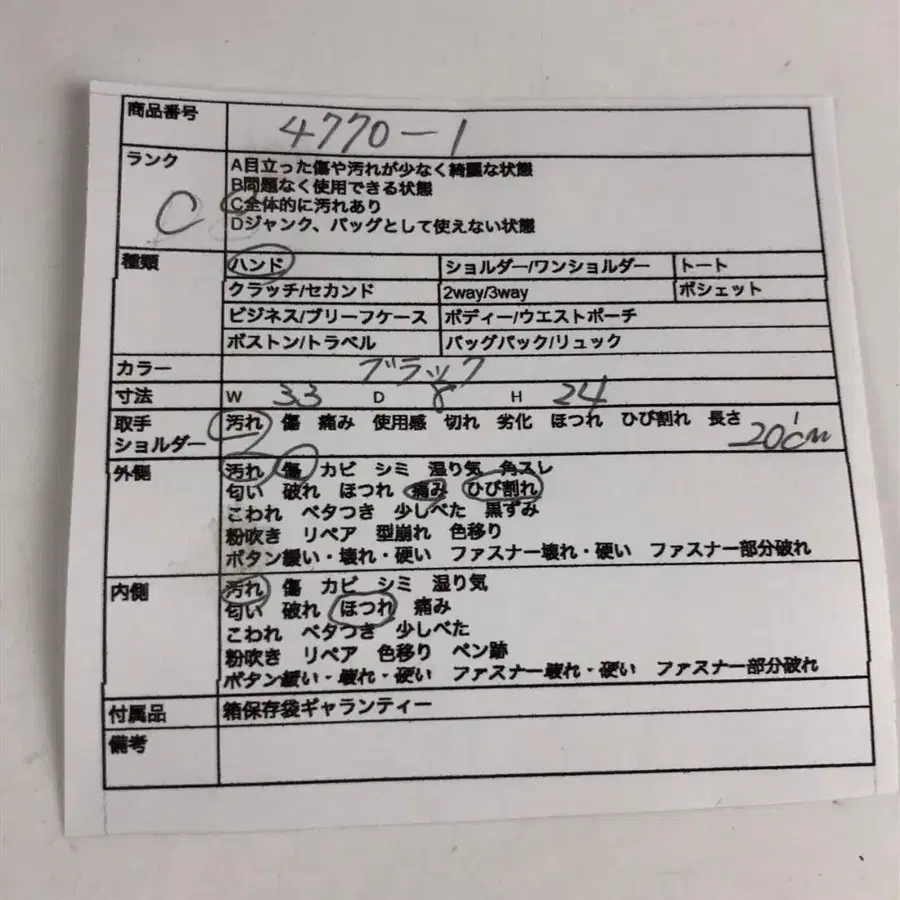 商品番号 4770-1
ランク C
A目立った傷や汚れが少なく綺麗な状態
B問題なく使用できる状態
C全体的に汚れあり
Dジャンク、バッグとして使えない状態
種類 ハンド ショルダー/ワンショルダー トート
クラッチ/セカンド 2way/3way ポシェット
ビジネス/ブリーフケース ボディー/ウエストポーチ
ボストン/トラベル バッグパック/リュック
カラー ブラック
寸法 W 33 D 8 H 24
取手 汚れ 傷 痛み 使用感 切れ 劣化 ほつれ ひび割れ 長さ
ショルダー 20cm
外側 汚れ 傷 カビ シミ 湿り気 角スレ
匂い 破れ ほつれ 痛み ひび割れ
こわれ ベタつき 少しべた 黒ずみ
粉吹き リペア 型崩れ 色移り
ボタン緩い・壊れ・硬い ファスナー壊れ・硬い ファスナー部分破れ
内側 汚れ 傷 カビ シミ 湿り気
匂い 破れ ほつれ 痛み
こわれ ベタつき 少しべた
粉吹き リペア 色移り ペン跡
ボタン緩い・壊れ・硬い ファスナー壊れ・硬い ファスナー部分破れ
付属品 箱保存袋ギャランティー
備考